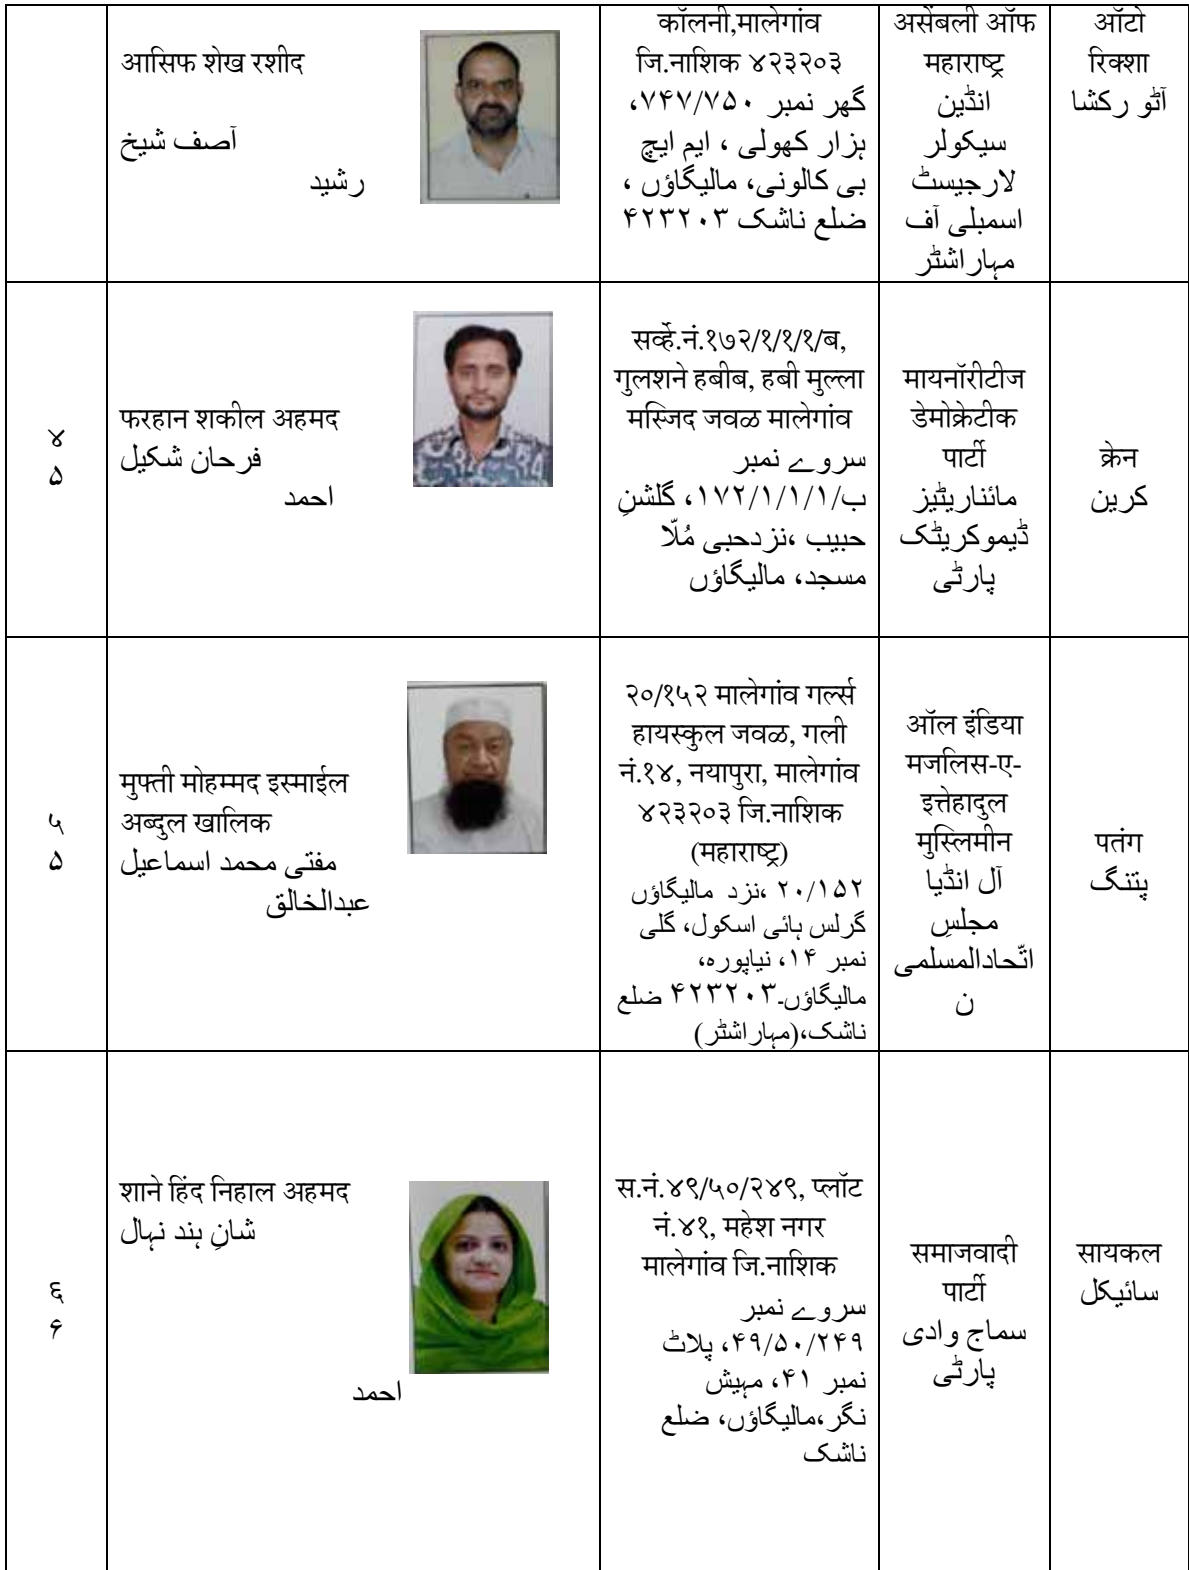 आसिफ शेख रशीद
آصف شیخ
رشید
कॉलनी,मालेगांव
जि.नाशिक ४२३२०३
گھر نمبر ۷۴۷/۷۵۰،
ہزار کھولی ، ایم ایچ
بی کالونی، مالیگاؤں ،
ضلع ناشک ۴۲۳۲۰۳
असेंबली ऑफ
महाराष्ट्र
انڈین
سیکولر
لارجیسٹ
اسمبلی آف
مہاراشٹر
ऑटो
रिक्शा
آٹو رکشا
४
۵
फरहान शकील अहमद
فرحان شکیل
احمد
सर्व्हे.नं.१७२/१/१/१/ब,
गुलशने हबीब, हबी मुल्ला
मस्जिद जवळ मालेगांव
سروے نمبر
۱۷۲/۱/۱/۱/ب، گلشنِ
حبیب ،نزدحبی مُلّا
مسجد، مالیگاؤں
मायनॉरीटीज
डेमोक्रेटीक
पार्टी
مائناریٹیز
ڈیموکریٹک
پارٹی
क्रेन
کرین
५
۵
मुफ्ती मोहम्मद इस्माईल
अब्दुल खालिक
مفتی محمد اسماعیل
عبدالخالق
२०/१५२ मालेगांव गर्ल्स
हायस्कुल जवळ, गली
नं.१४, नयापुरा, मालेगांव
४२३२०३ जि.नाशिक
(महाराष्ट्र)
۲۰/۱۵۲ ،نزد مالیگاؤں
گرلس ہائی اسکول، گلی
نمبر ۱۴، نیاپورہ،
مالیگاؤں۔۴۲۳۲۰۳ ضلع
ناشک،(مہاراشٹر)
ऑल इंडिया
मजलिस-ए-
इत्तेहादुल
मुस्लिमीन
آل انڈیا
مجلسِ
اتّحادالمسلمی
ن
पतंग
پتنگ
६
۶
शाने हिंद निहाल अहमद
شانِ ہند نہال
احمد
स.नं.४९/५०/२४९, प्लॉट
नं.४१, महेश नगर
मालेगांव जि.नाशिक
سروے نمبر
۴۹/۵۰/۲۴۹، پلاٹ
نمبر ۴۱، مہیش
نگر،مالیگاؤں، ضلع
ناشک
समाजवादी
पार्टी
سماج وادی
پارٹی
सायकल
سائیکل